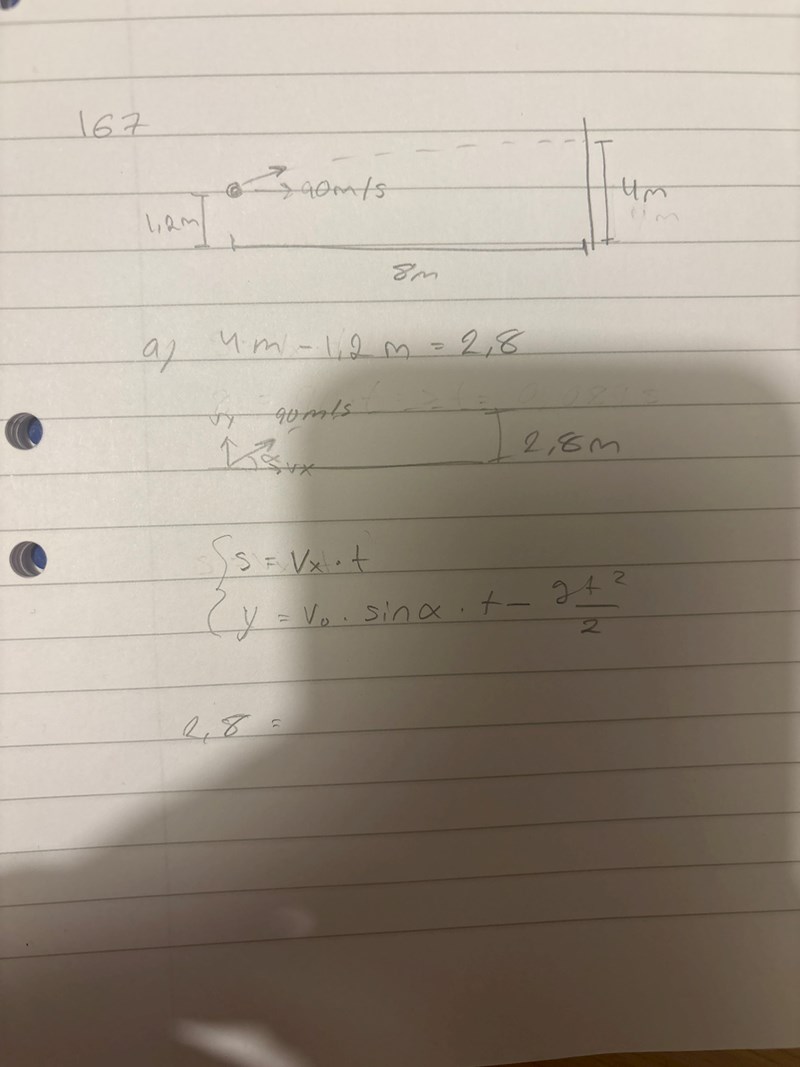 167
90m/s
4m
1,2m
8m
a) 4m - 1,2m = 2,8
vy 90m/s
2,8m
α vx
s = Vx · t
y = V₀ · sinα · t - gt²/2
2,8 =